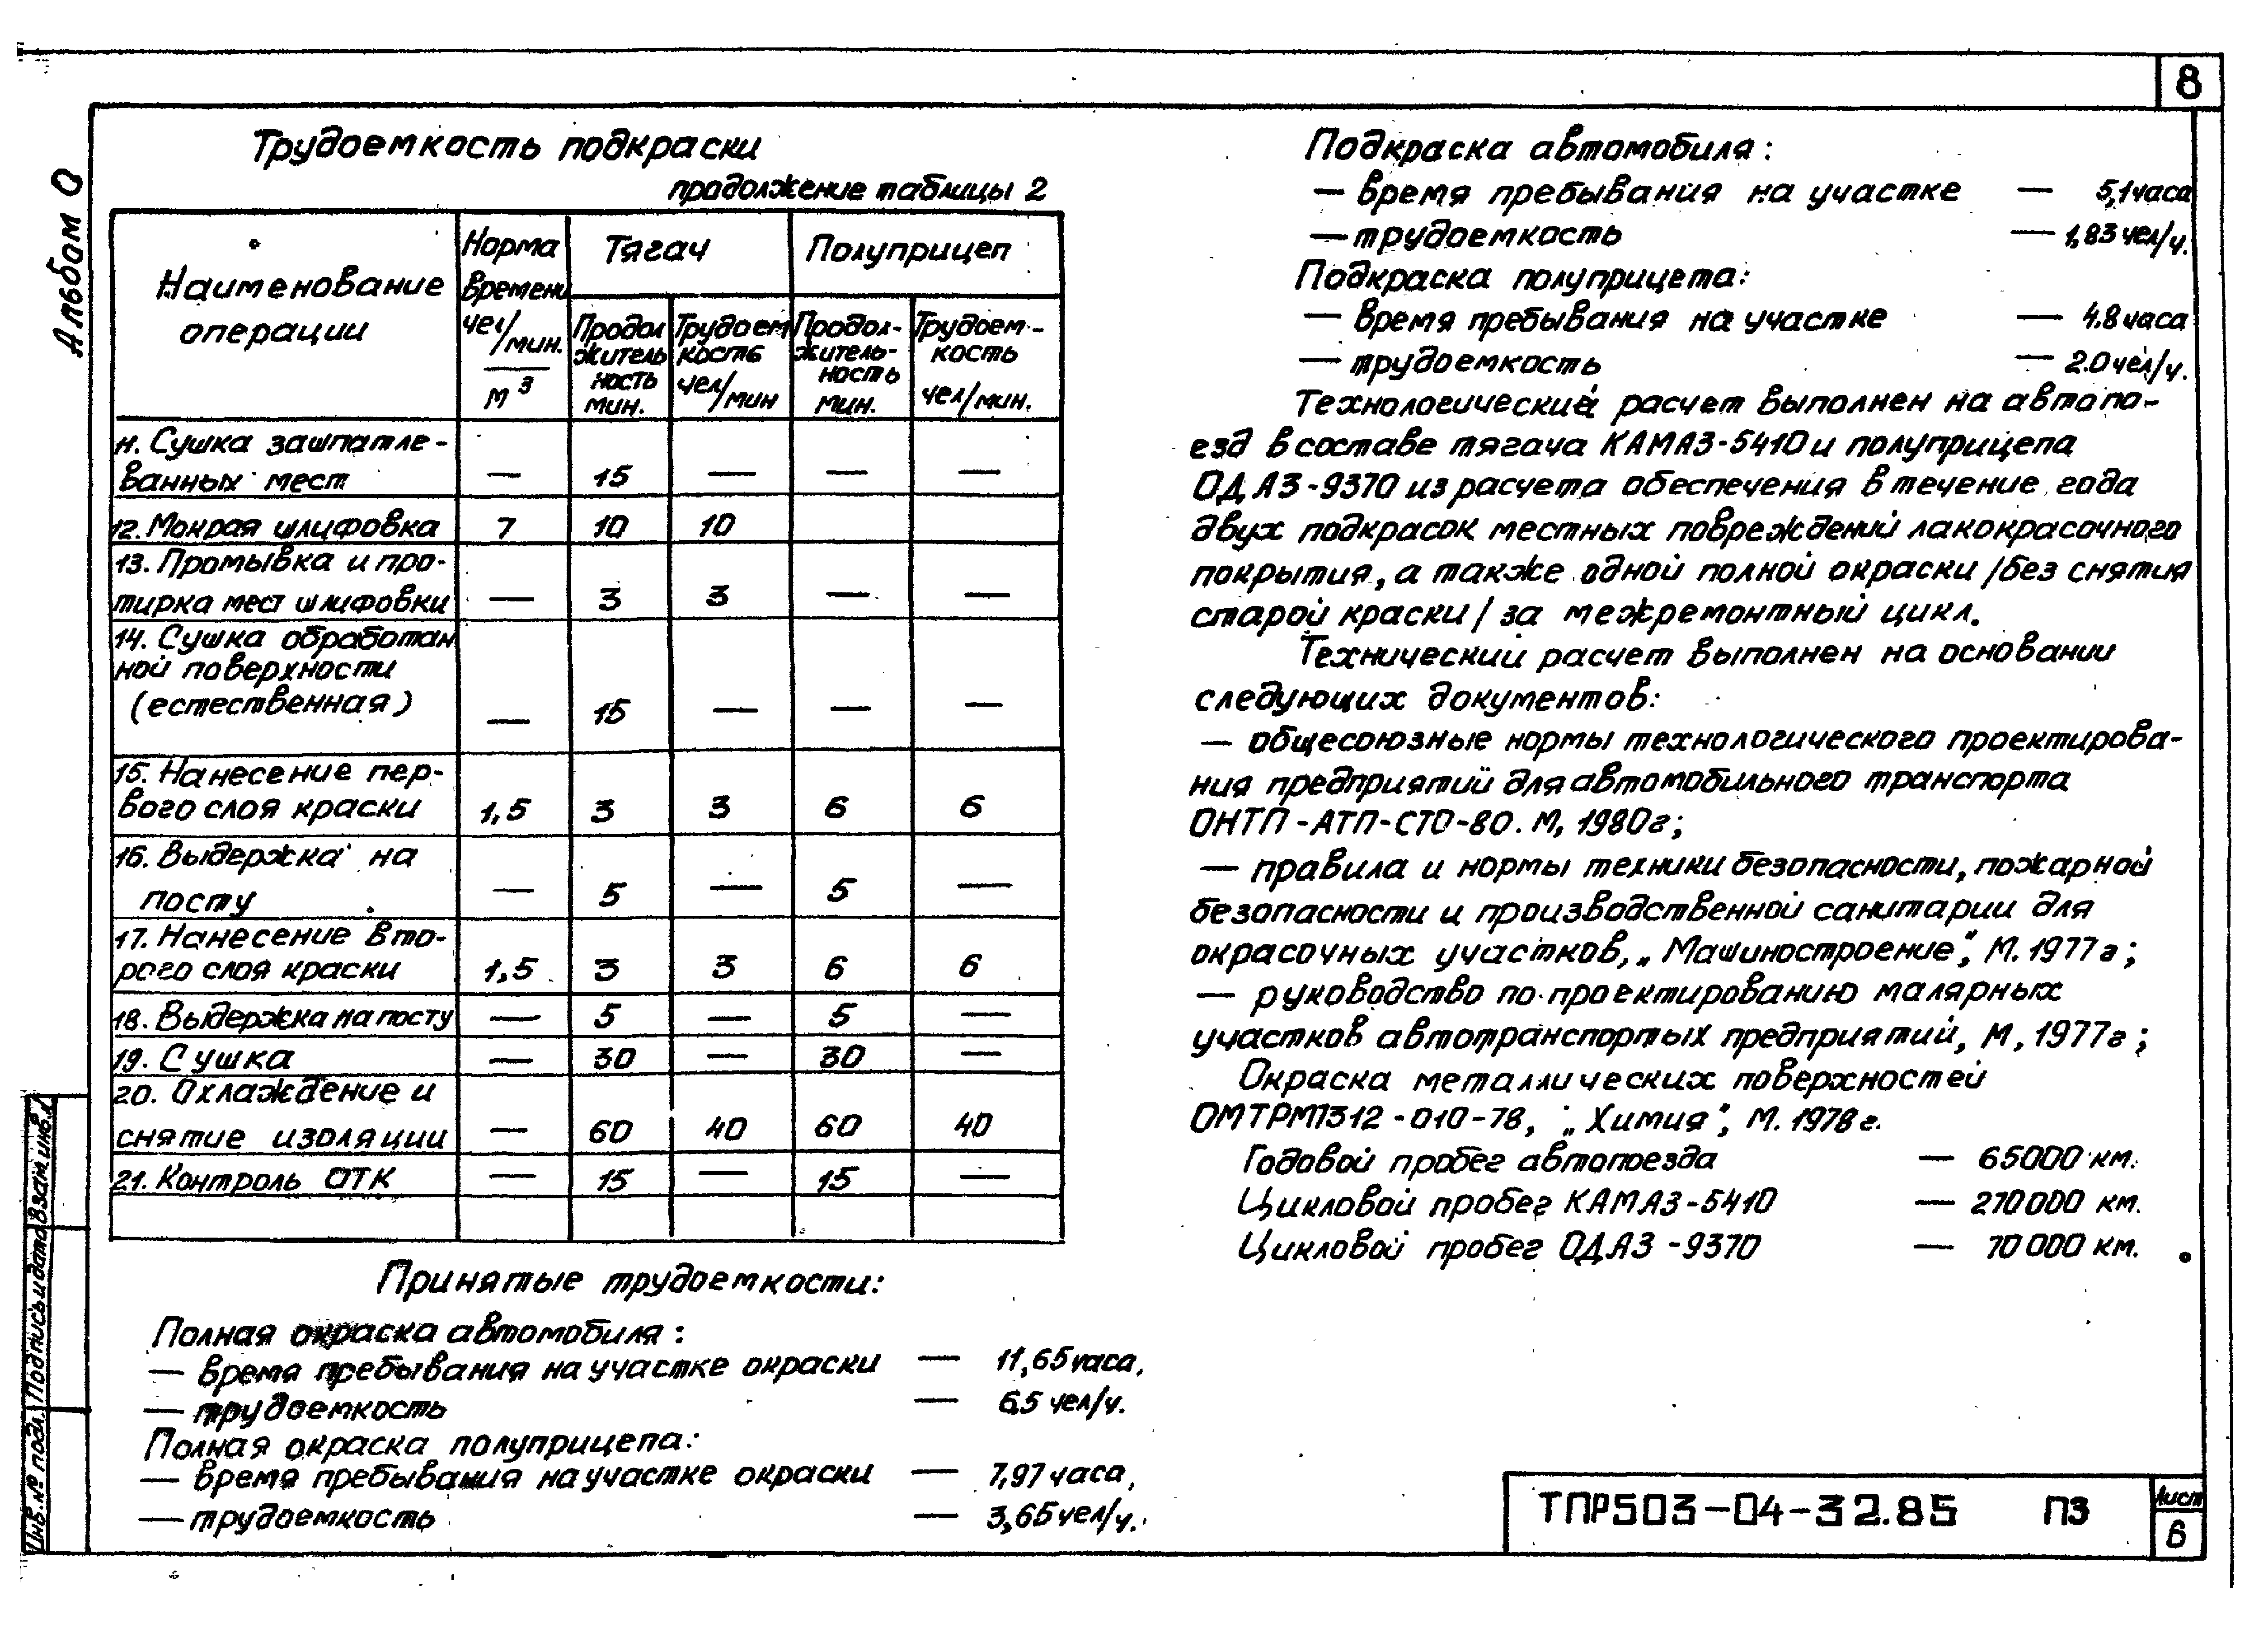 8
Альбом 0
Трудоемкость подкраски
продолжение таблицы 2
Наименование операции | Норма времени чел/мин. м³ | Тягач | Полуприцеп
Продолжительность мин. | Трудоемкость чел/мин | Продол-житель-ность мин. | Трудоем-кость чел/мин.
11. Сушка зашпатле-
ванных мест — 15 — — —
12. Мокрая шлифовка 7 10 10
13. Промывка и про-
тирка мест шлифовки — 3 3 — —
14. Сушка обработан
ной поверхности
(естественная) — 15 — — —
15. Нанесение пер-
вого слоя краски 1,5 3 3 6 6
16. Выдержка на
посту — 5 — 5 —
17. Нанесение вто-
рого слоя краски 1,5 3 3 6 6
18. Выдержка на посту — 5 — 5 —
19. Сушка — 30 — 30 —
20. Охлаждение и
снятие изоляции — 60 40 60 40
21. Контроль ОТК — 15 — 15 —
Принятые трудоемкости:
Полная окраска автомобиля:
— время пребывания на участке окраски — 11,65 часа,
— трудоемкость — 6,5 чел/ч.
Полная окраска полуприцепа:
— время пребывания на участке окраски — 7,97 часа,
— трудоемкость — 3,65 чел/ч.
Подкраска автомобиля:
— время пребывания на участке — 5,1 часа
— трудоемкость — 1,83 чел/ч.
Подкраска полуприцета:
— время пребывания на участке — 4.8 часа
— трудоемкость — 2.0 чел/ч.
Технологический расчет выполнен на автопо-
езд в составе тягача КАМАЗ-5410 и полуприцепа
ОДАЗ-9370 из расчета обеспечения в течение года
двух подкрасок местных повреждений лакокрасочного
покрытия, а также одной полной окраски /без снятия
старой краски/ за межремонтный цикл.
Технический расчет выполнен на основании
следующих документов:
— общесоюзные нормы технологического проектирова-
ния предприятий для автомобильного транспорта
ОНТП-АТП-СТО-80. М, 1980г;
— правила и нормы техники безопасности, пожарной
безопасности и производственной санитарии для
окрасочных участков, „Машиностроение", М. 1977г;
— руководство по проектированию малярных
участков автотранспортых предприятий, М, 1977г;
Окраска металлических поверхностей
ОМТРМ7312-010-78, „Химия", М. 1978г.
Годовой пробег автопоезда — 65000 км.
Цикловой пробег КАМАЗ-5410 — 270000 км.
Цикловой пробег ОДАЗ-9370 — 70000 км.
Инв.№ подл. Подпись и дата Взам.инв.
ТПР503-04-32.85 ПЗ
Лист
6